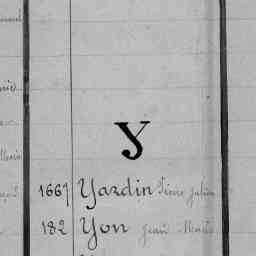 Y
1667 Yardin Pierre Julien
182 Yon Jean Marie